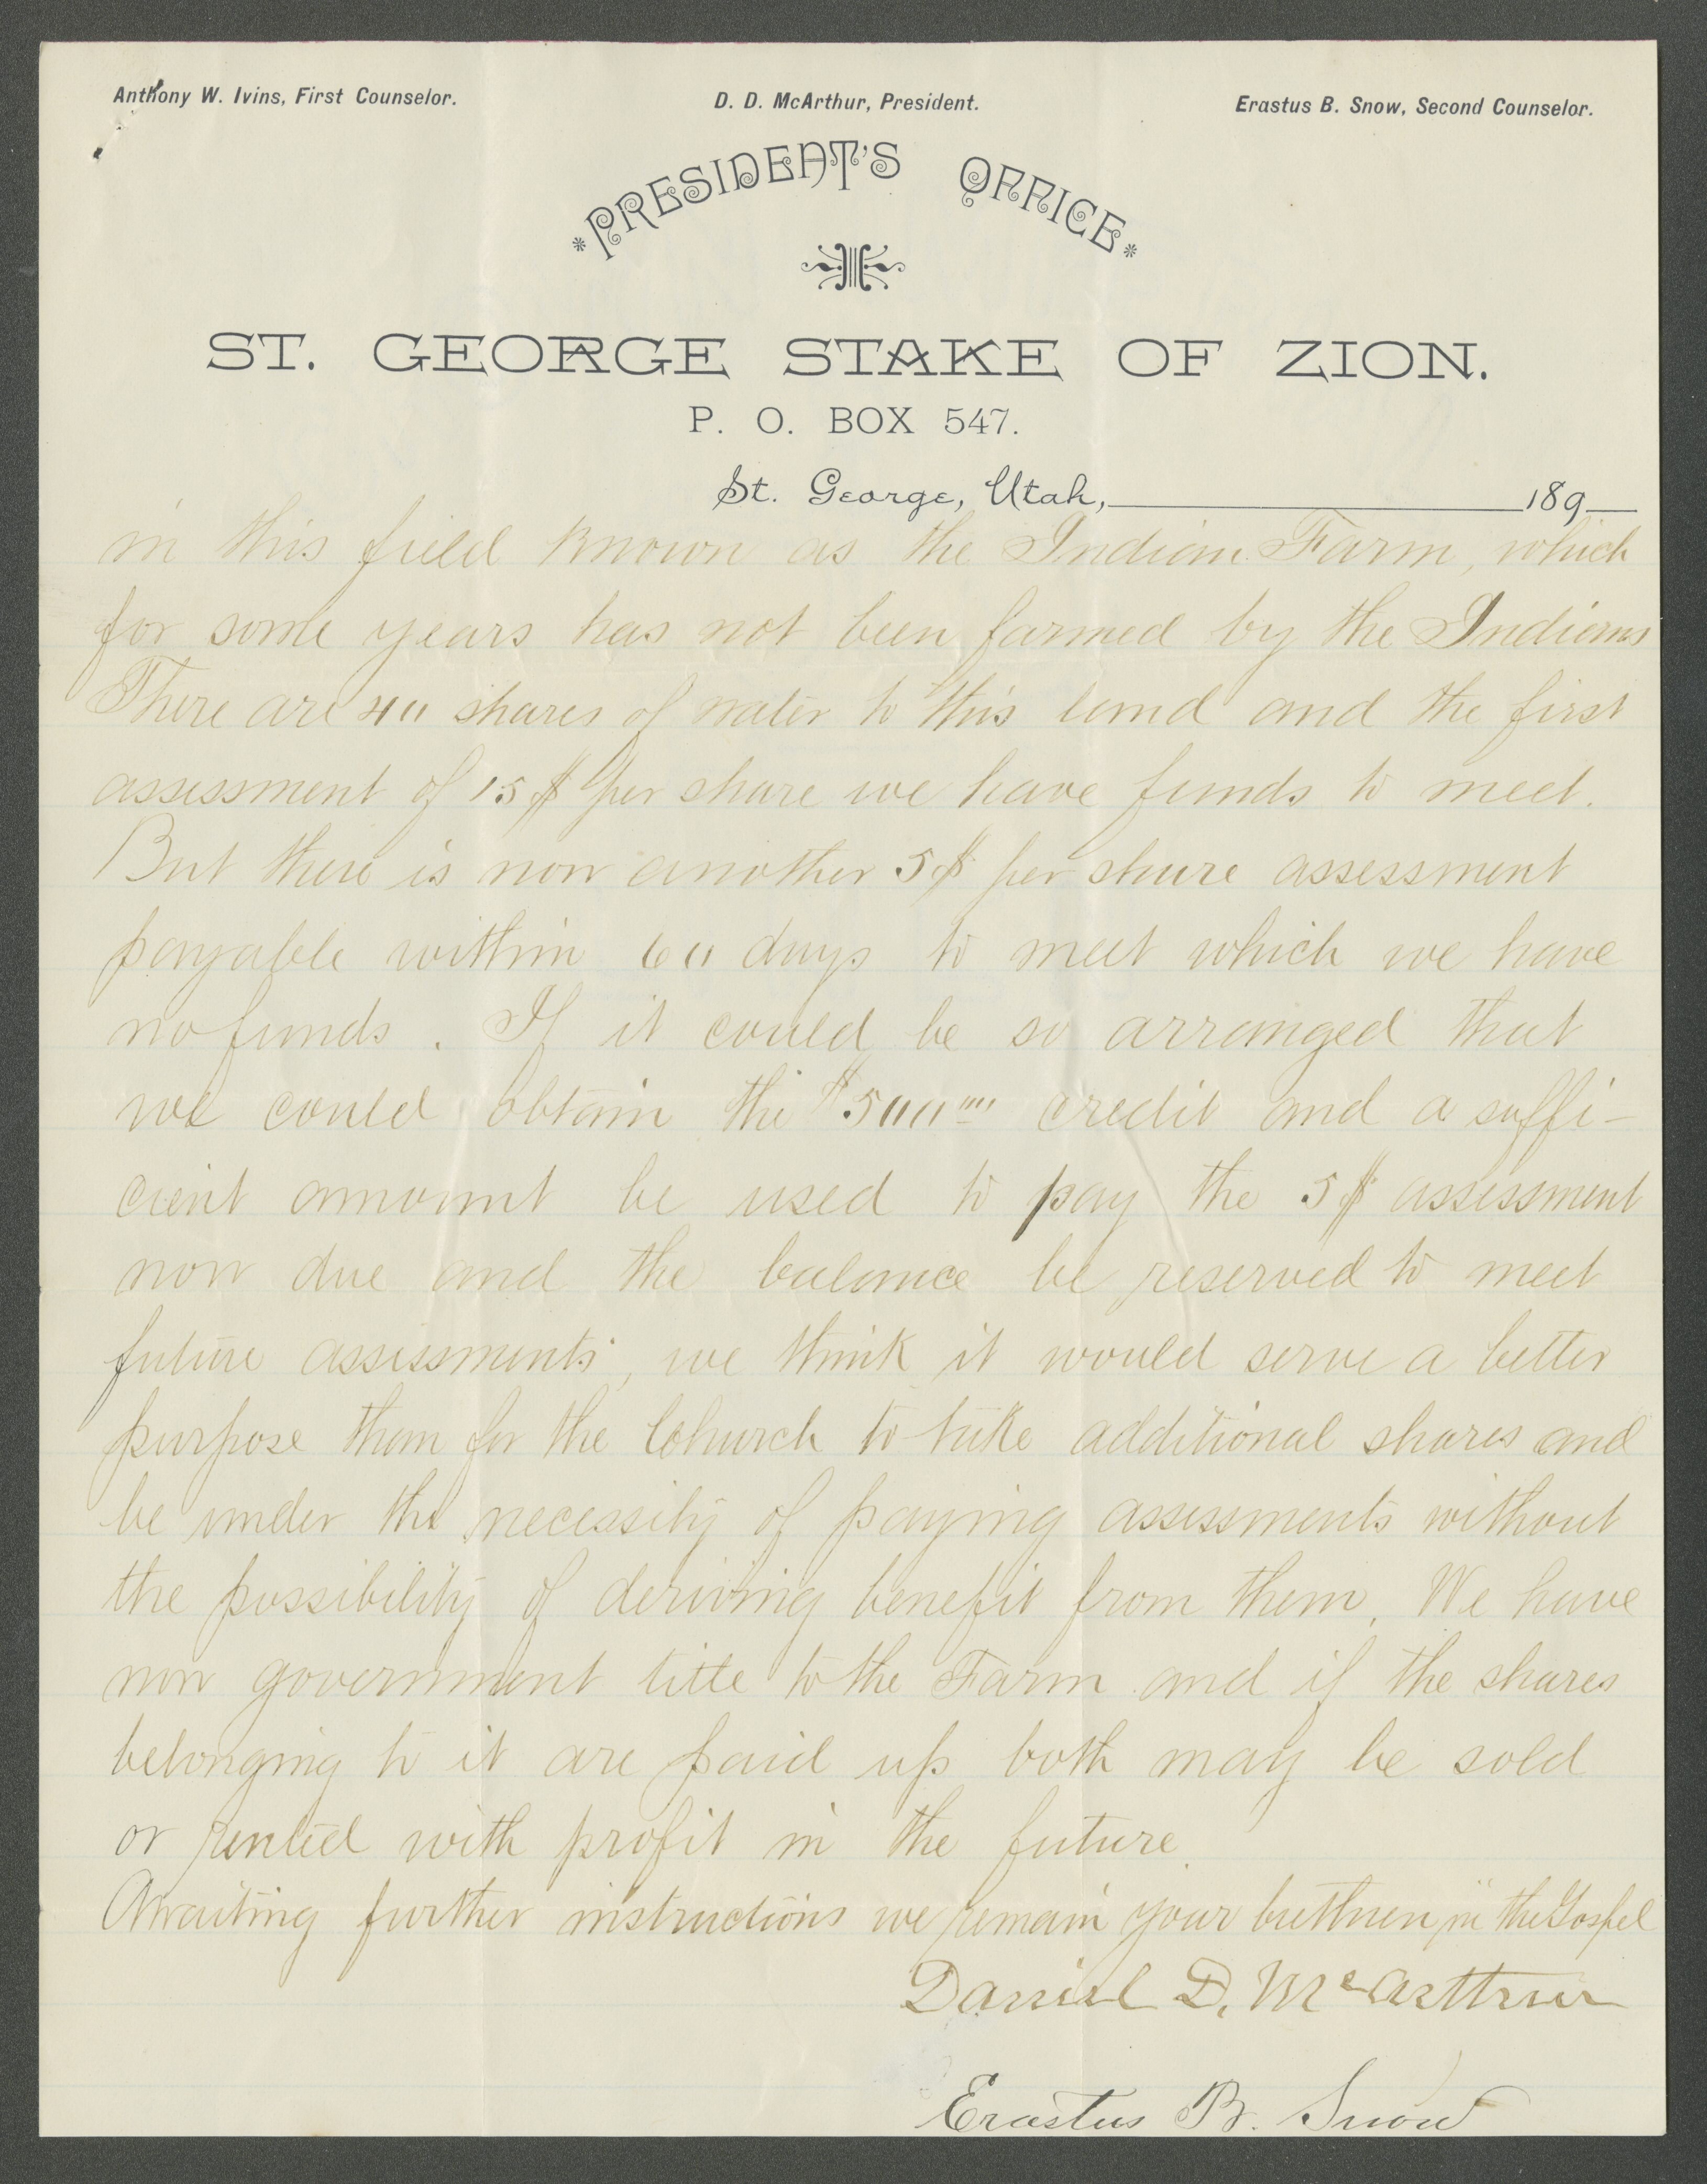 Anthony W. Ivins, First Counselor.
D. D. McArthur, President.
Erastus B. Snow, Second Counselor.
PRESIDENT'S OFFICE
ST. GEORGE STAKE OF ZION.
P. O. BOX 547.
St. George, Utah, 189
in this field known as the Indian Farm, which
for some years has not been farmed by the Indians
There are 40 shares of water to this land and the first
assessment of 15$ per share we have funds to meet.
But there is now another 5$ per share assessment
payable within 60 days to meet which we have
no funds. If it could be so arranged that
we could obtain the $500.00 credit and a suffi-
cient amount be used to pay the 5$ assessment
now due and the balance be reserved to meet
future assessments, we think it would serve a better
purpose than for the Church to take additional shares and
be under the necessity of paying assessments without
the possibility of deriving benefit from them. We have
now government title to the Farm and if the shares
belonging to it are paid up both may be sold
or rented with profit in the future.
Awaiting further instructions we remain your brethren in the Gospel
Daniel D. McArthur
Erastus B. Snow